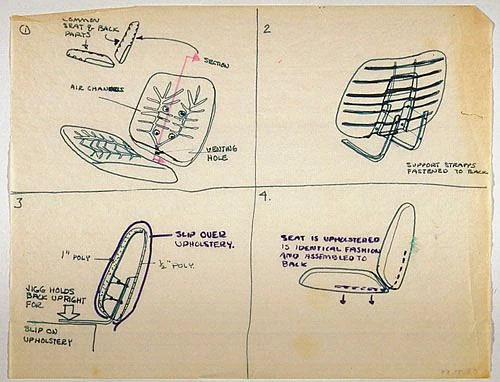 1
COMMON
SEAT & BACK
PARTS
SECTION
AIR CHANNELS
VENTING
HOLE
2
SUPPORT STRAPS
FASTENED TO BACK
3
SLIP OVER
UPHOLSTERY.
1" POLY
1/2" POLY.
JIGG HOLDS
BACK UPRIGHT
FOR
SLIP ON
UPHOLSTERY
4.
SEAT IS UPHOLSTERED
IS IDENTICAL FASHION
AND ASSEMBLED TO
BACK